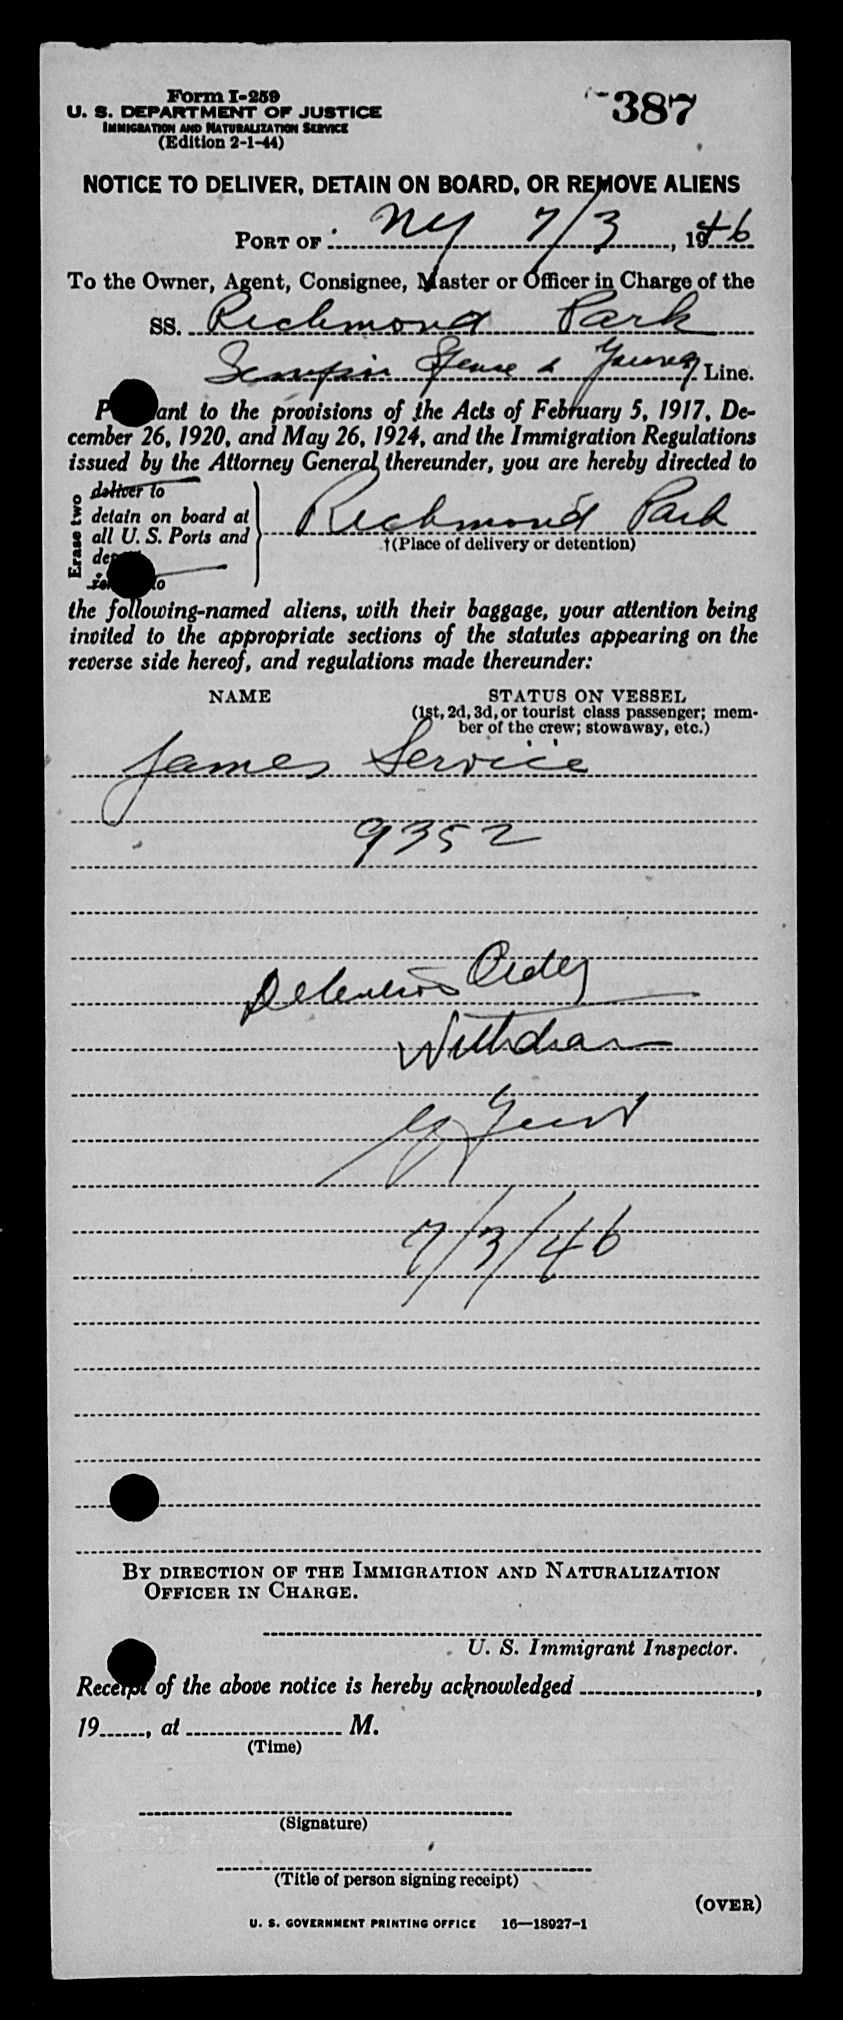 Form I-259
U. S. DEPARTMENT OF JUSTICE
IMMIGRATION AND NATURALIZATION SERVICE
(Edition 2-1-44)
387
NOTICE TO DELIVER, DETAIN ON BOARD, OR REMOVE ALIENS
PORT OF NY 7/3, 1946
To the Owner, Agent, Consignee, Master or Officer in Charge of the
SS. Richmond Park
& Young Line.
P ant to the provisions of the Acts of February 5, 1917, De-
cember 26, 1920, and May 26, 1924, and the Immigration Regulations
issued by the Attorney General thereunder, you are hereby directed to
Erase two
deliver to
detain on board at
all U. S. Ports and
de
to
Richmond Park
†(Place of delivery or detention)
the following-named aliens, with their baggage, your attention being
invited to the appropriate sections of the statutes appearing on the
reverse side hereof, and regulations made thereunder:
NAME STATUS ON VESSEL
(1st, 2d, 3d, or tourist class passenger; mem-
ber of the crew; stowaway, etc.)
James Service
9352
Detention Order
Withdrawn
7/3/46
BY DIRECTION OF THE IMMIGRATION AND NATURALIZATION
OFFICER IN CHARGE.
U. S. Immigrant Inspector.
Receipt of the above notice is hereby acknowledged ,
19 , at M.
(Time)
(Signature)
(Title of person signing receipt)
(OVER)
U. S. GOVERNMENT PRINTING OFFICE 16—18927-1